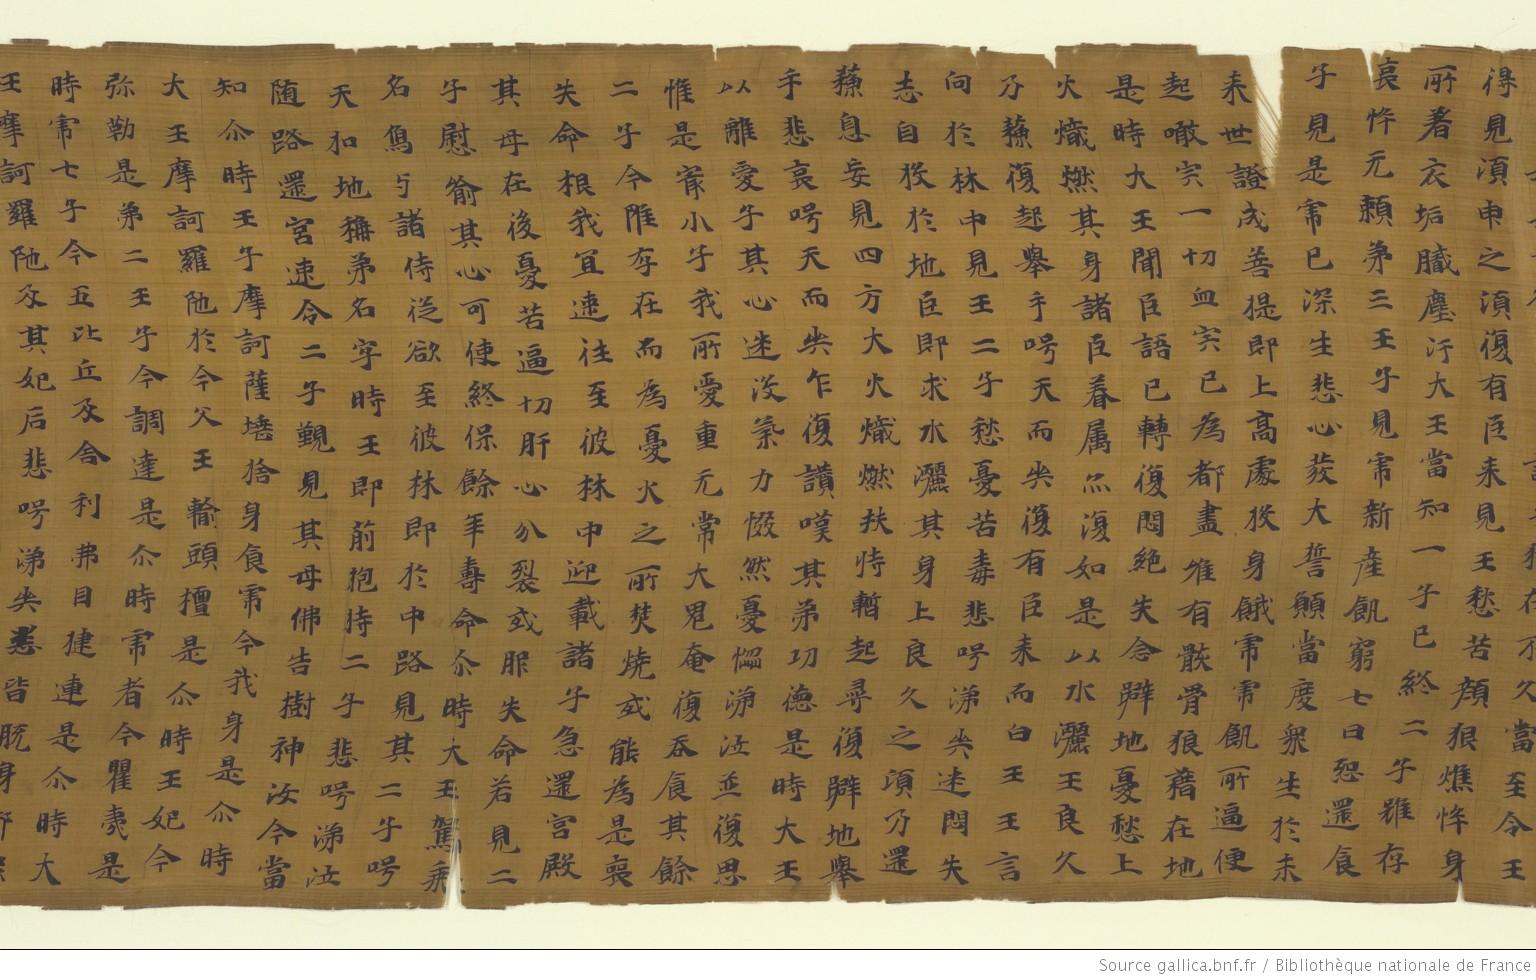 不久當至今王
得見須申之須復有臣来見王愁苦顔狼燋悴身
所著衣垢膩塵汙大王當知一子已終二子雖存
哀悴无頼第三王子見虎新産飢窮七日恐還食
子見是虎已深生悲心發大誓願當度衆生於未
来世證成菩提即上高處投身餓虎虎飢所逼便
起噉宍一切血宍已為都盡唯有骸骨狼藉在地
是時大王聞臣語已轉復悶絶失念躃地憂愁上
火熾燃其身諸臣眷属亦復如是以水灑王良久
乃蘇復起舉手呺天而哭復有臣来而白王王言
向於林中見王二子愁憂苦毒悲呺涕哭迷悶失
志自投於地臣即求水灑其身上良久之頃乃還
蘇息妄見四方大火熾燃扶恃暫起尋復躃地舉
手悲哀呺天而哭乍復讃嘆其弟功徳是時大王
以離愛子其心迷没氣力惙然憂惱涕泣並復思
惟是㝡小子我所愛重无常大鬼奄復吞食其餘
二子今唯存在而為憂火之所焚焼或能為是喪
失命根我宜速往至彼林中迎載諸子急還宮殿
其母在後憂苦逼切肝心分裂或失命若見二
子慰喻其心可使終保餘年壽命尒時大王駕乗
名鳥与諸侍従欲至彼林即於中路見其二子呺
天扣地稱弟名字時王即前抱持二子悲呺涕泣
随路還宮速令二子覲見其母佛告樹神汝今當
知尒時王子摩訶薩埵捨身食虎今我身是尒時
大王摩訶羅陁於今父王輸頭檀是尒時王妃今
弥勒是第二王子今調達是尒時虎者今瞿夷是
時虎七子今五比丘及舍利弗目揵連是尒時大
王摩訶羅陁及其妃后悲呺涕哭悉皆脱身
Source gallica.bnf.fr / Bibliothèque nationale de France